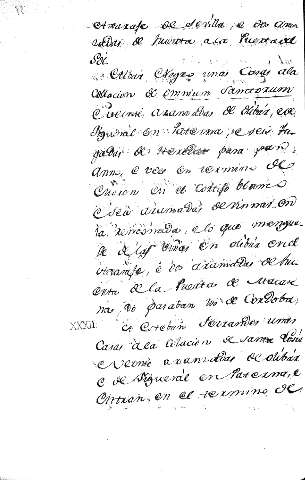 Axarafe de Sevilla, e dos aran
zadas de huerta a la Puerta del
Sol.
unas Casas à la
colacion de omnium Sanctorum
e veinte aranzadas de olibar, e de
figueral en Paterna, e seis yu
gadas de heredat para pan
Ann, e vez en termino de
en el cortijo blanco
e seis aranzadas de viñas en
la e lo que mengua
de las viñas en olibar en el
Axarafe, e dos aranzadas de hu
erta de la Puerta de Macare
na, do paraban los de Cordoba.
XXXII. et Esteban Ferrandes unas
Casas à la colacion de Santa
e veinte aranzadas de olibar
e de figueral en Paterna, e
en el termino de